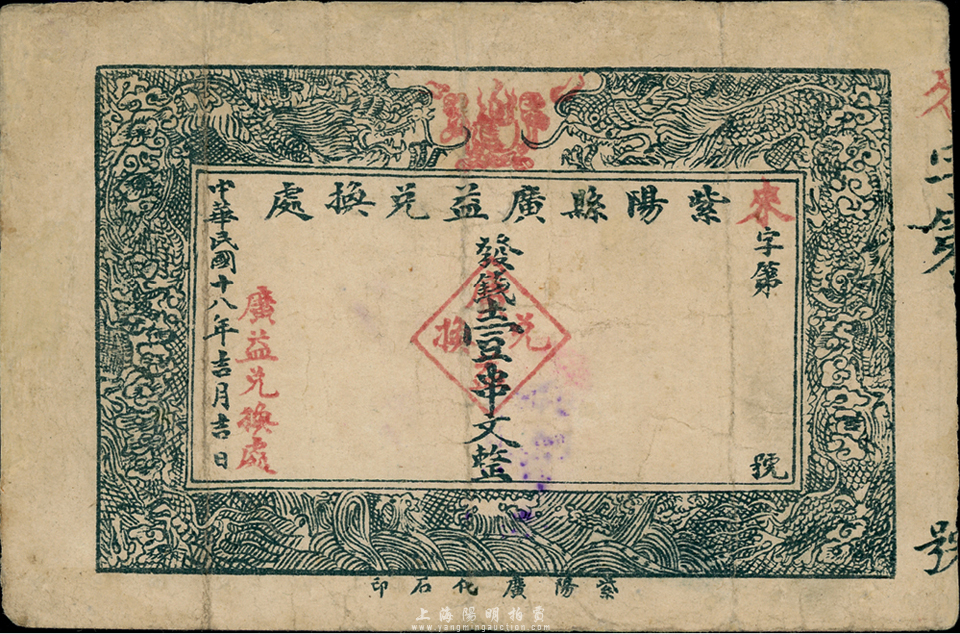 紫陽縣廣益兑換處
來字第
號
發錢壹串文整
兑換
中華民國十八年吉月吉日
廣益兑換處
字第
號
紫陽廣化石印
上海陽明拍賣
www.yangmingauction.com